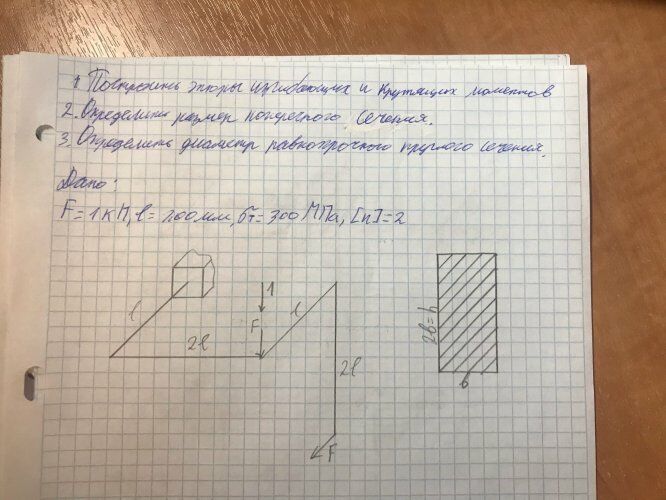 1 Построить эпюры изгибающих и крутящих моментов
2. Определить размер поперечного сечения.
3. Определить диаметр равнопрочного круглого сечения.
Дано:
F=1кН, l=200мм, σт=300МПа, [n]=2
l
2l
1
F
l
2l
F
2b=h
b